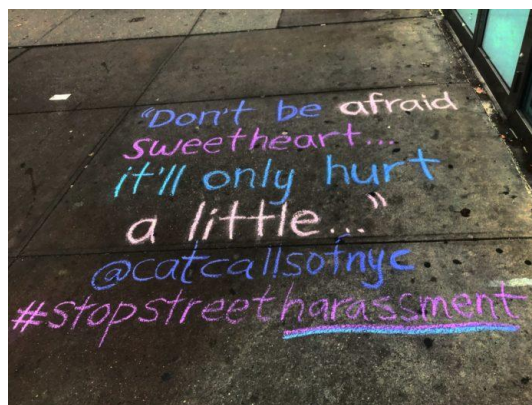 "Don't be afraid
sweetheart...
it'll only hurt
a little..."
@catcallsofnyc
#stopstreetharassment